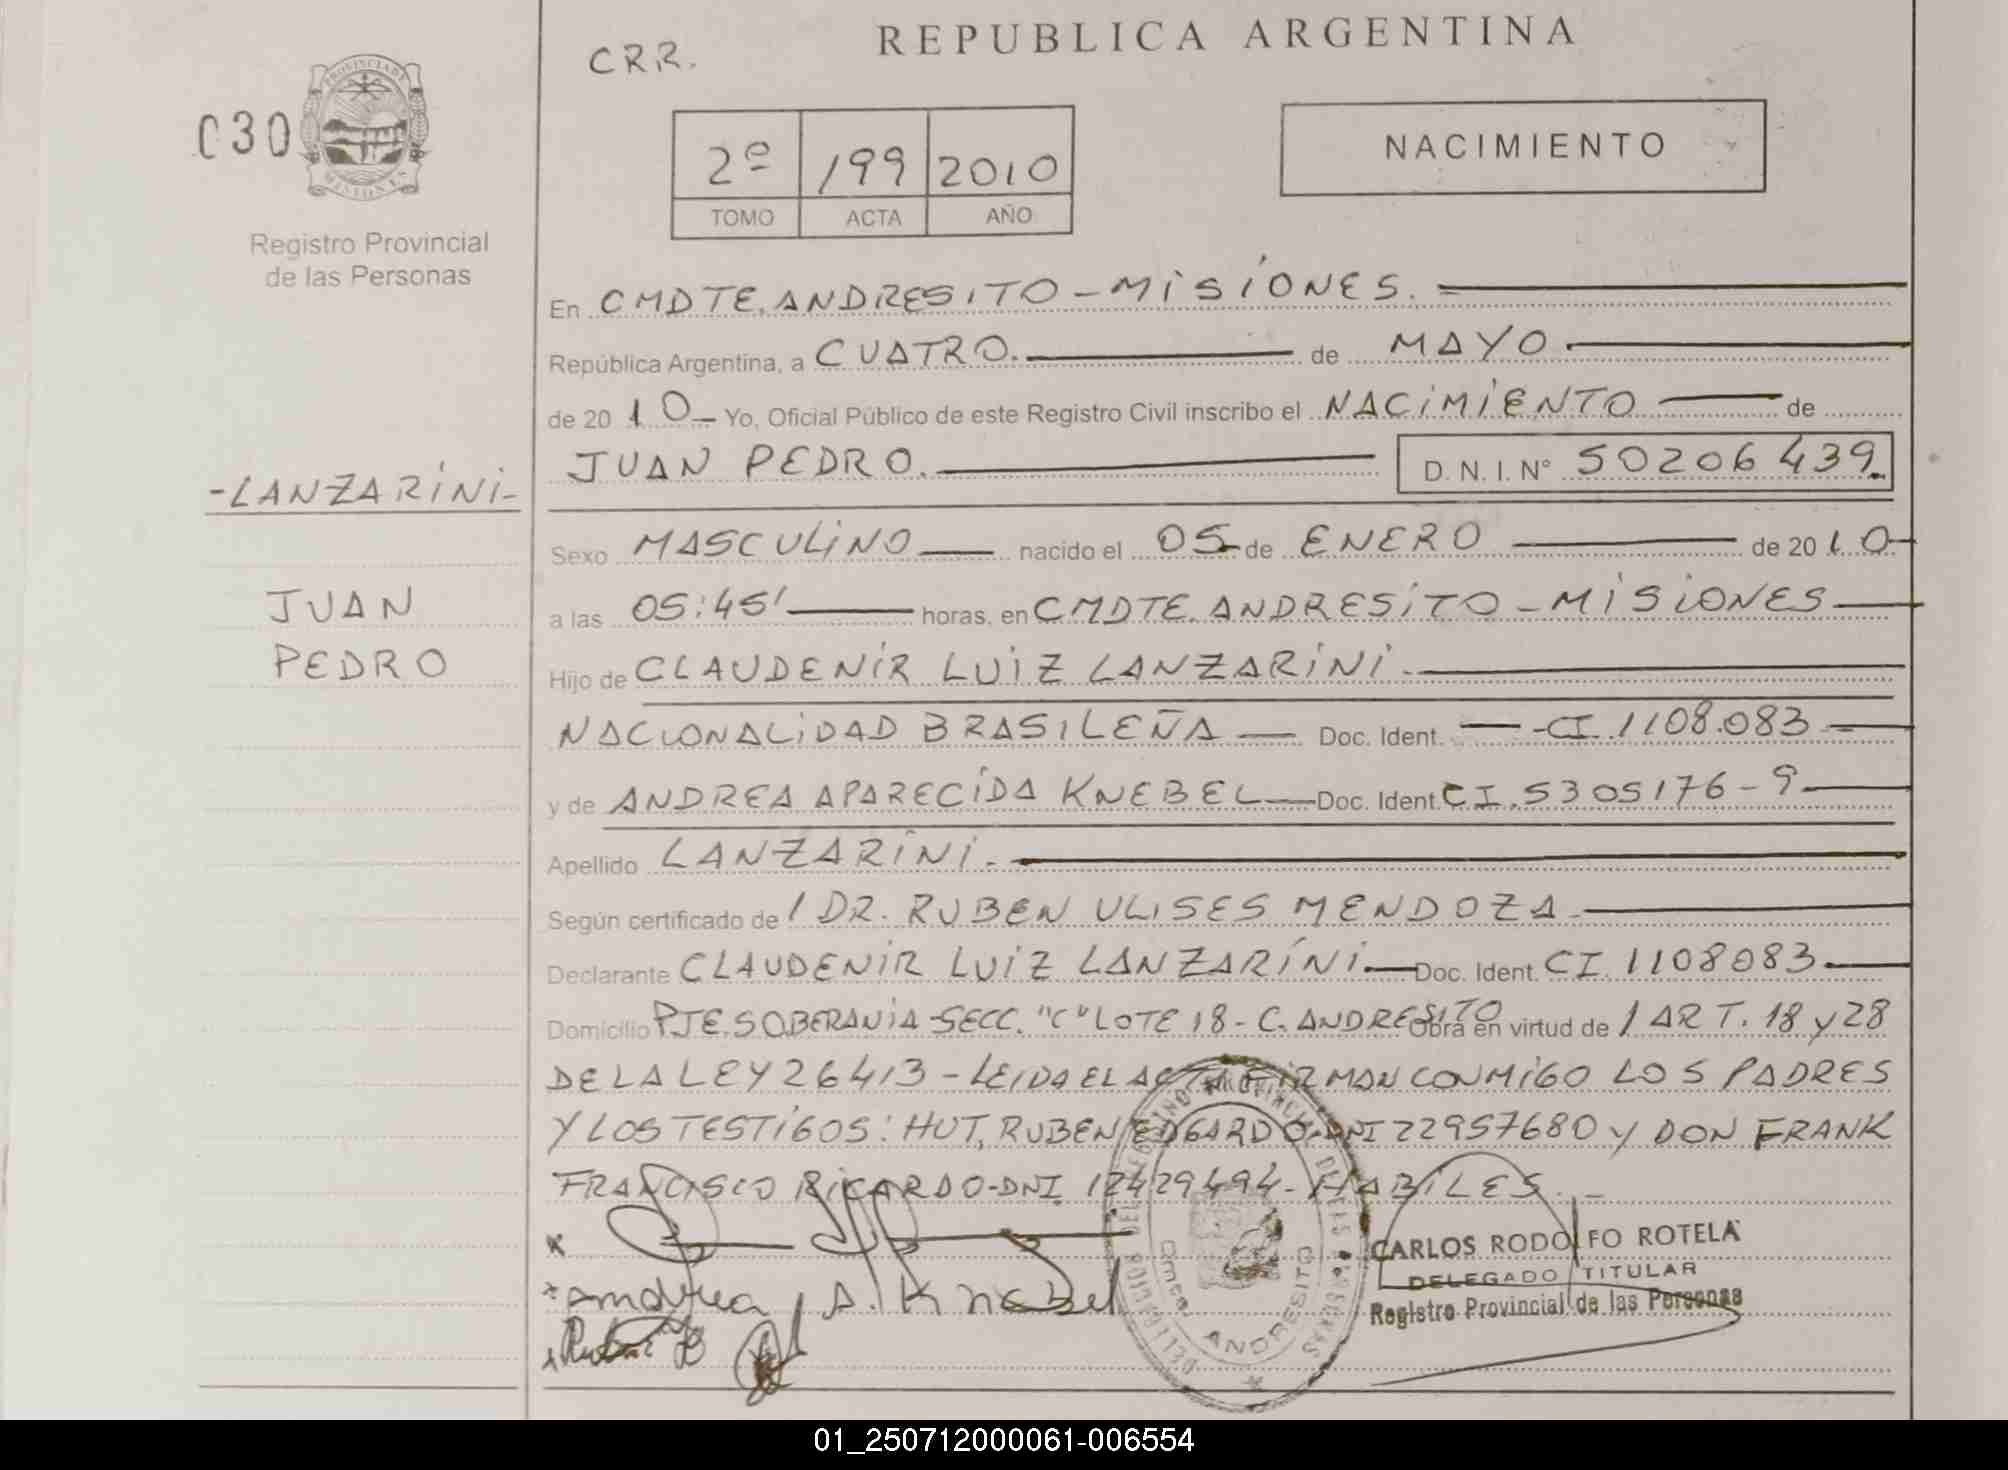 CRR.
REPUBLICA ARGENTINA
030
PROVINCIA DE
MISIONES
Registro Provincial
de las Personas
2º 199 2010
TOMO ACTA AÑO
NACIMIENTO
En CMDTE. ANDRESITO - MISIONES.
República Argentina, a CUATRO. de MAYO
de 2010 Yo, Oficial Público de este Registro Civil inscribo el NACIMIENTO de
JUAN PEDRO. D. N. I. Nº 50206439.
-LANZARINI-
JUAN
PEDRO
Sexo MASCULINO nacido el 05 de ENERO de 2010
a las 05:45' horas, en CMDTE. ANDRESITO - MISIONES
Hijo de CLAUDENIR LUIZ LANZARINI.
NACIONALIDAD BRASILEÑA Doc. Ident. -CI. 1108.083
y de ANDREA APARECIDA KNEBEL Doc. Ident. CI. 5305176-9
Apellido LANZARINI.
Según certificado de / DR. RUBEN ULISES MENDOZA
Declarante CLAUDENIR LUIZ LANZARINI Doc. Ident. CI. 1108083
Domicilio PJE. SOBERANIA - SECC. "C" LOTE 18 - C. ANDRESITO Obra en virtud de / ART. 18 y 28
DE LA LEY 26413 - LEIDA EL ACTA FIRMAN CONMIGO LOS PADRES
Y LOS TESTIGOS: HUT, RUBEN EDGARDO-DNI 22957680 y DON FRANK
FRANCISCO RICARDO-DNI 12429494- HABILES.
Andrea A. Knebel
ANDRESITO
CARLOS RODOLFO ROTELA
DELEGADO TITULAR
Registro Provincial de las Personas
01_250712000061-006554